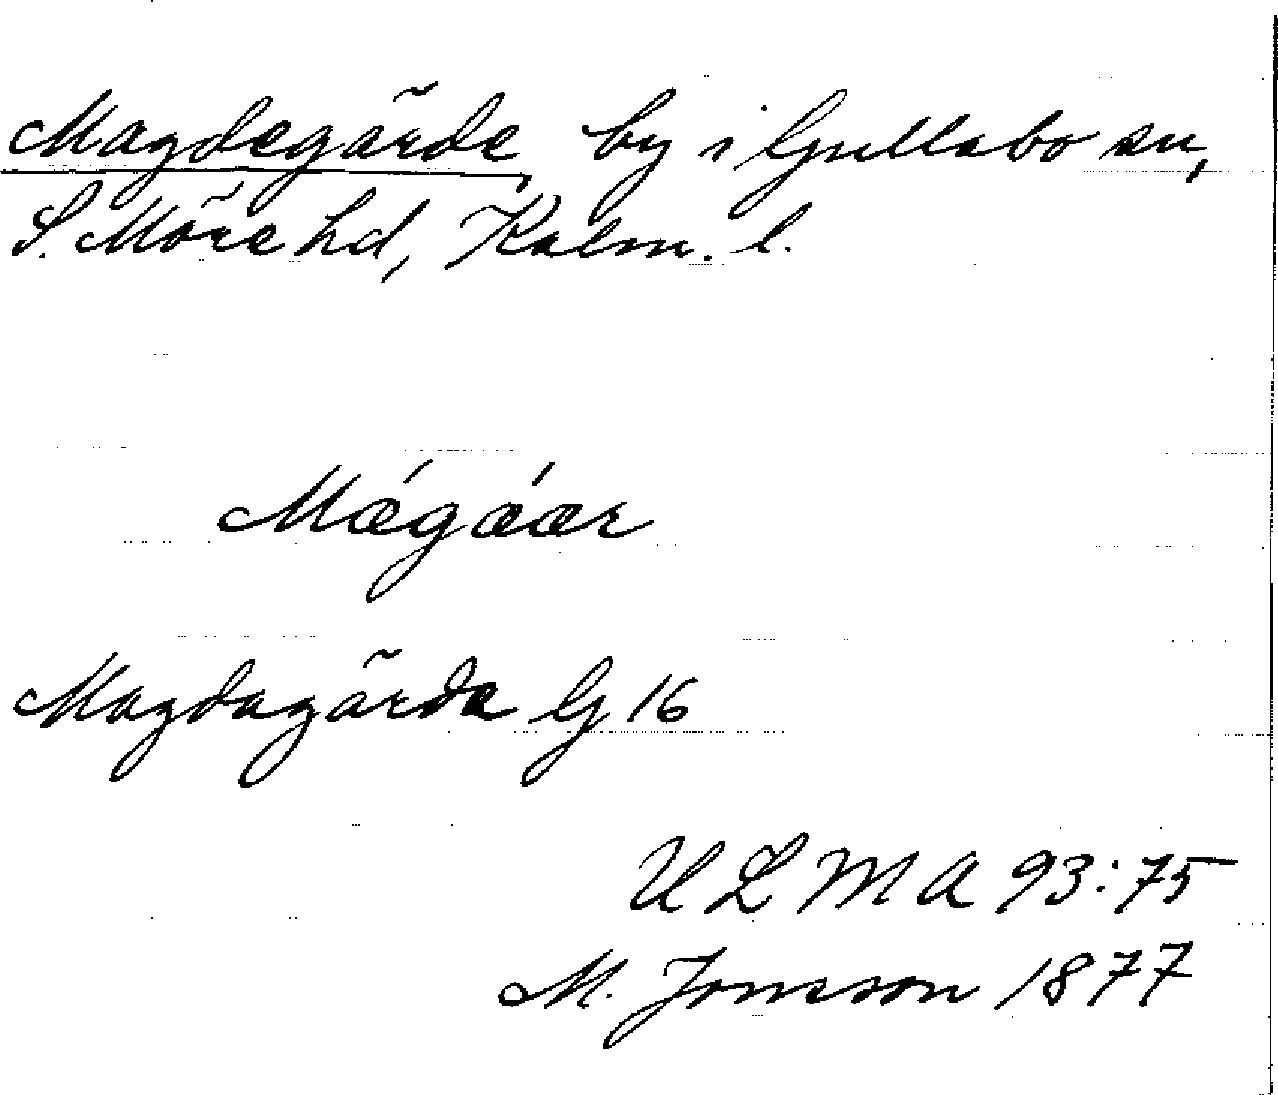 Magdegärde, by i Gullabo sn,
S. Möre hd, Kalm. l.
Mǽgǽær
Magdagärde G 16
ULMA 93:75
M. Jonsson 1877